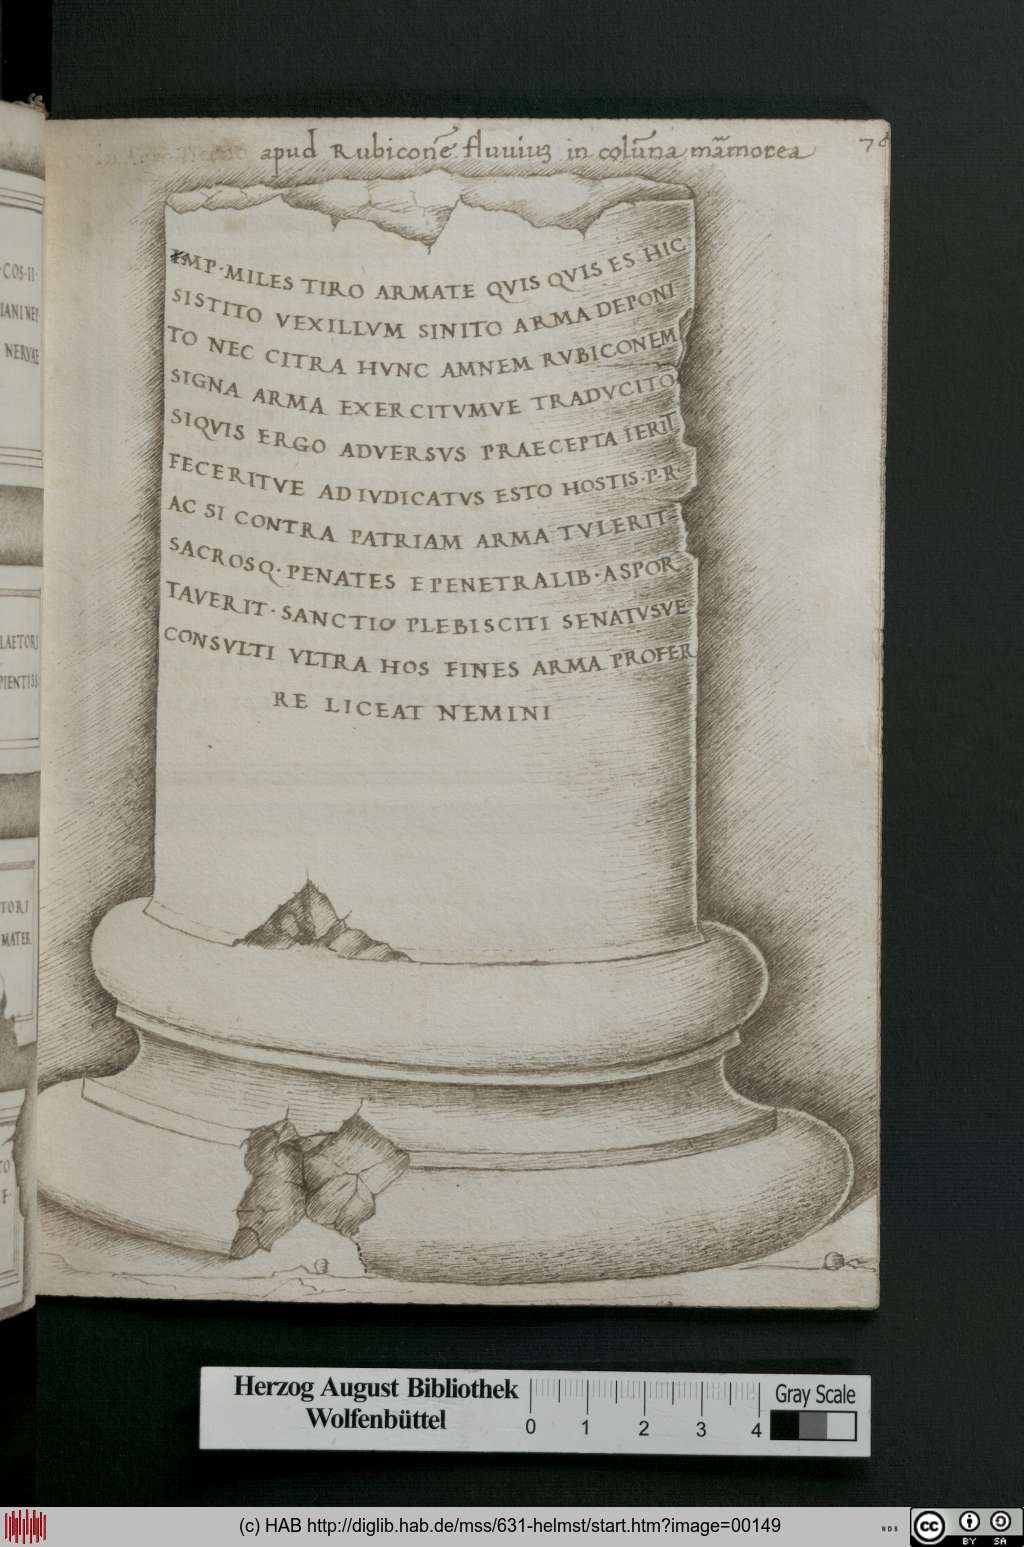 apud Rubiconē fluuiuȝ in colūna mārmorea
IMP·MILES TIRO ARMATE QVIS QVIS ES HIC
SISTITO VEXILLVM SINITO ARMA DEPONI
TO NEC CITRA HVNC AMNEM RVBICONEM
SIGNA ARMA EXERCITVMVE TRADVCITO
SIQVIS ERGO ADVERSVS PRAECEPTA IERIT
FECERITVE ADIVDICATVS ESTO HOSTIS·P·R·
AC SI CONTRA PATRIAM ARMA TVLERIT
SACROSQ·PENATES E PENETRALIB·ASPOR
TAVERIT·SANCTIO PLEBISCITI SENATVSVE
CONSVLTI VLTRA HOS FINES ARMA PROFER
RE LICEAT NEMINI
·COS·II·
IANI NEP
NERVAE
LAETORI
PIENTISS
TORI
MATER
Herzog August Bibliothek
Wolfenbüttel
0 1 2 3 4
Gray Scale
(c) HAB http://diglib.hab.de/mss/631-helmst/start.htm?image=00149
WDB
cc
BY SA